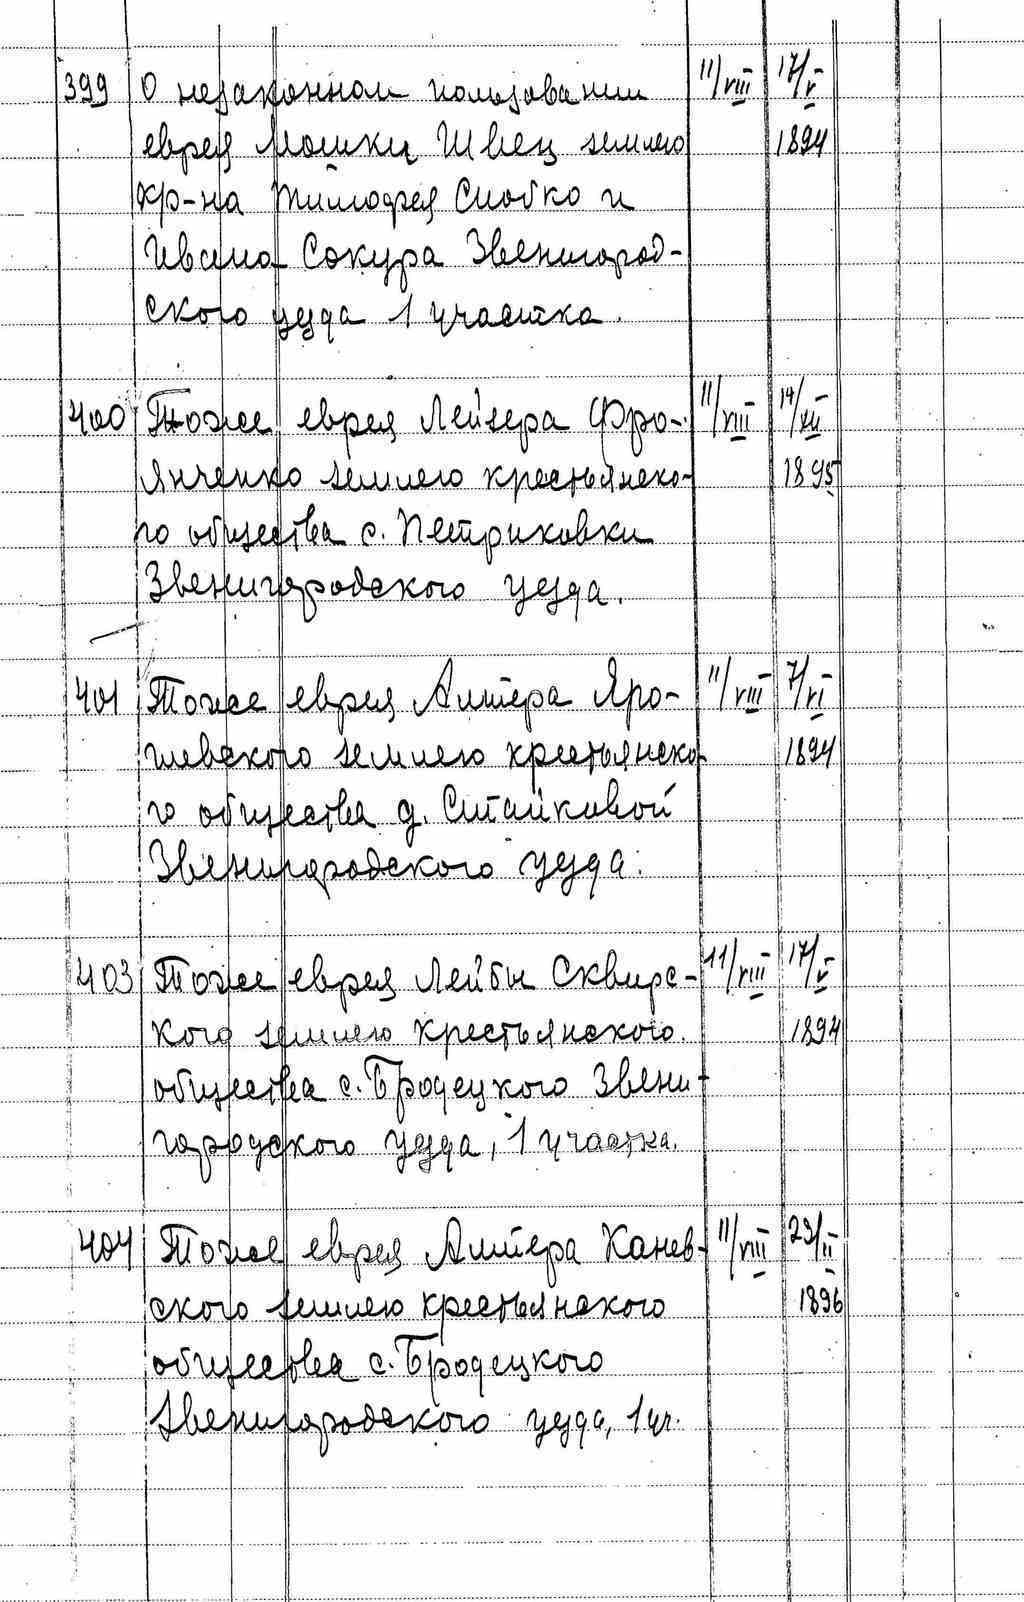 399 О незаконном пользовании 11/VIII 17/V
еврея Мошки Швец землею 1894
кр-на Тимофея Слобко и
Ивана Сокура Звенигород-
ского уезда 1 участка.
400 Тоже еврея Лейзера Фро- 11/VIII 14/XII
янченко землею крестьянско- 1895
го общества с. Петриковки
Звенигородского уезда.
401 Тоже еврея Алтера Яро- 11/VIII 7/VI
шевского землею крестьянско- 1894
го общества д. Стайковой
Звенигородского уезда.
403 Тоже еврея Лейбы Сквирс- 11/VIII 17/V
кого землею крестьянского 1894
общества с. Бродецкого Звени-
городского уезда, 1 участка.
404 Тоже еврея Алтера Канев- 11/VIII 23/II
ского землею крестьянского 1896
общества с. Бродецкого
Звенигородского уезда, 1 уч.